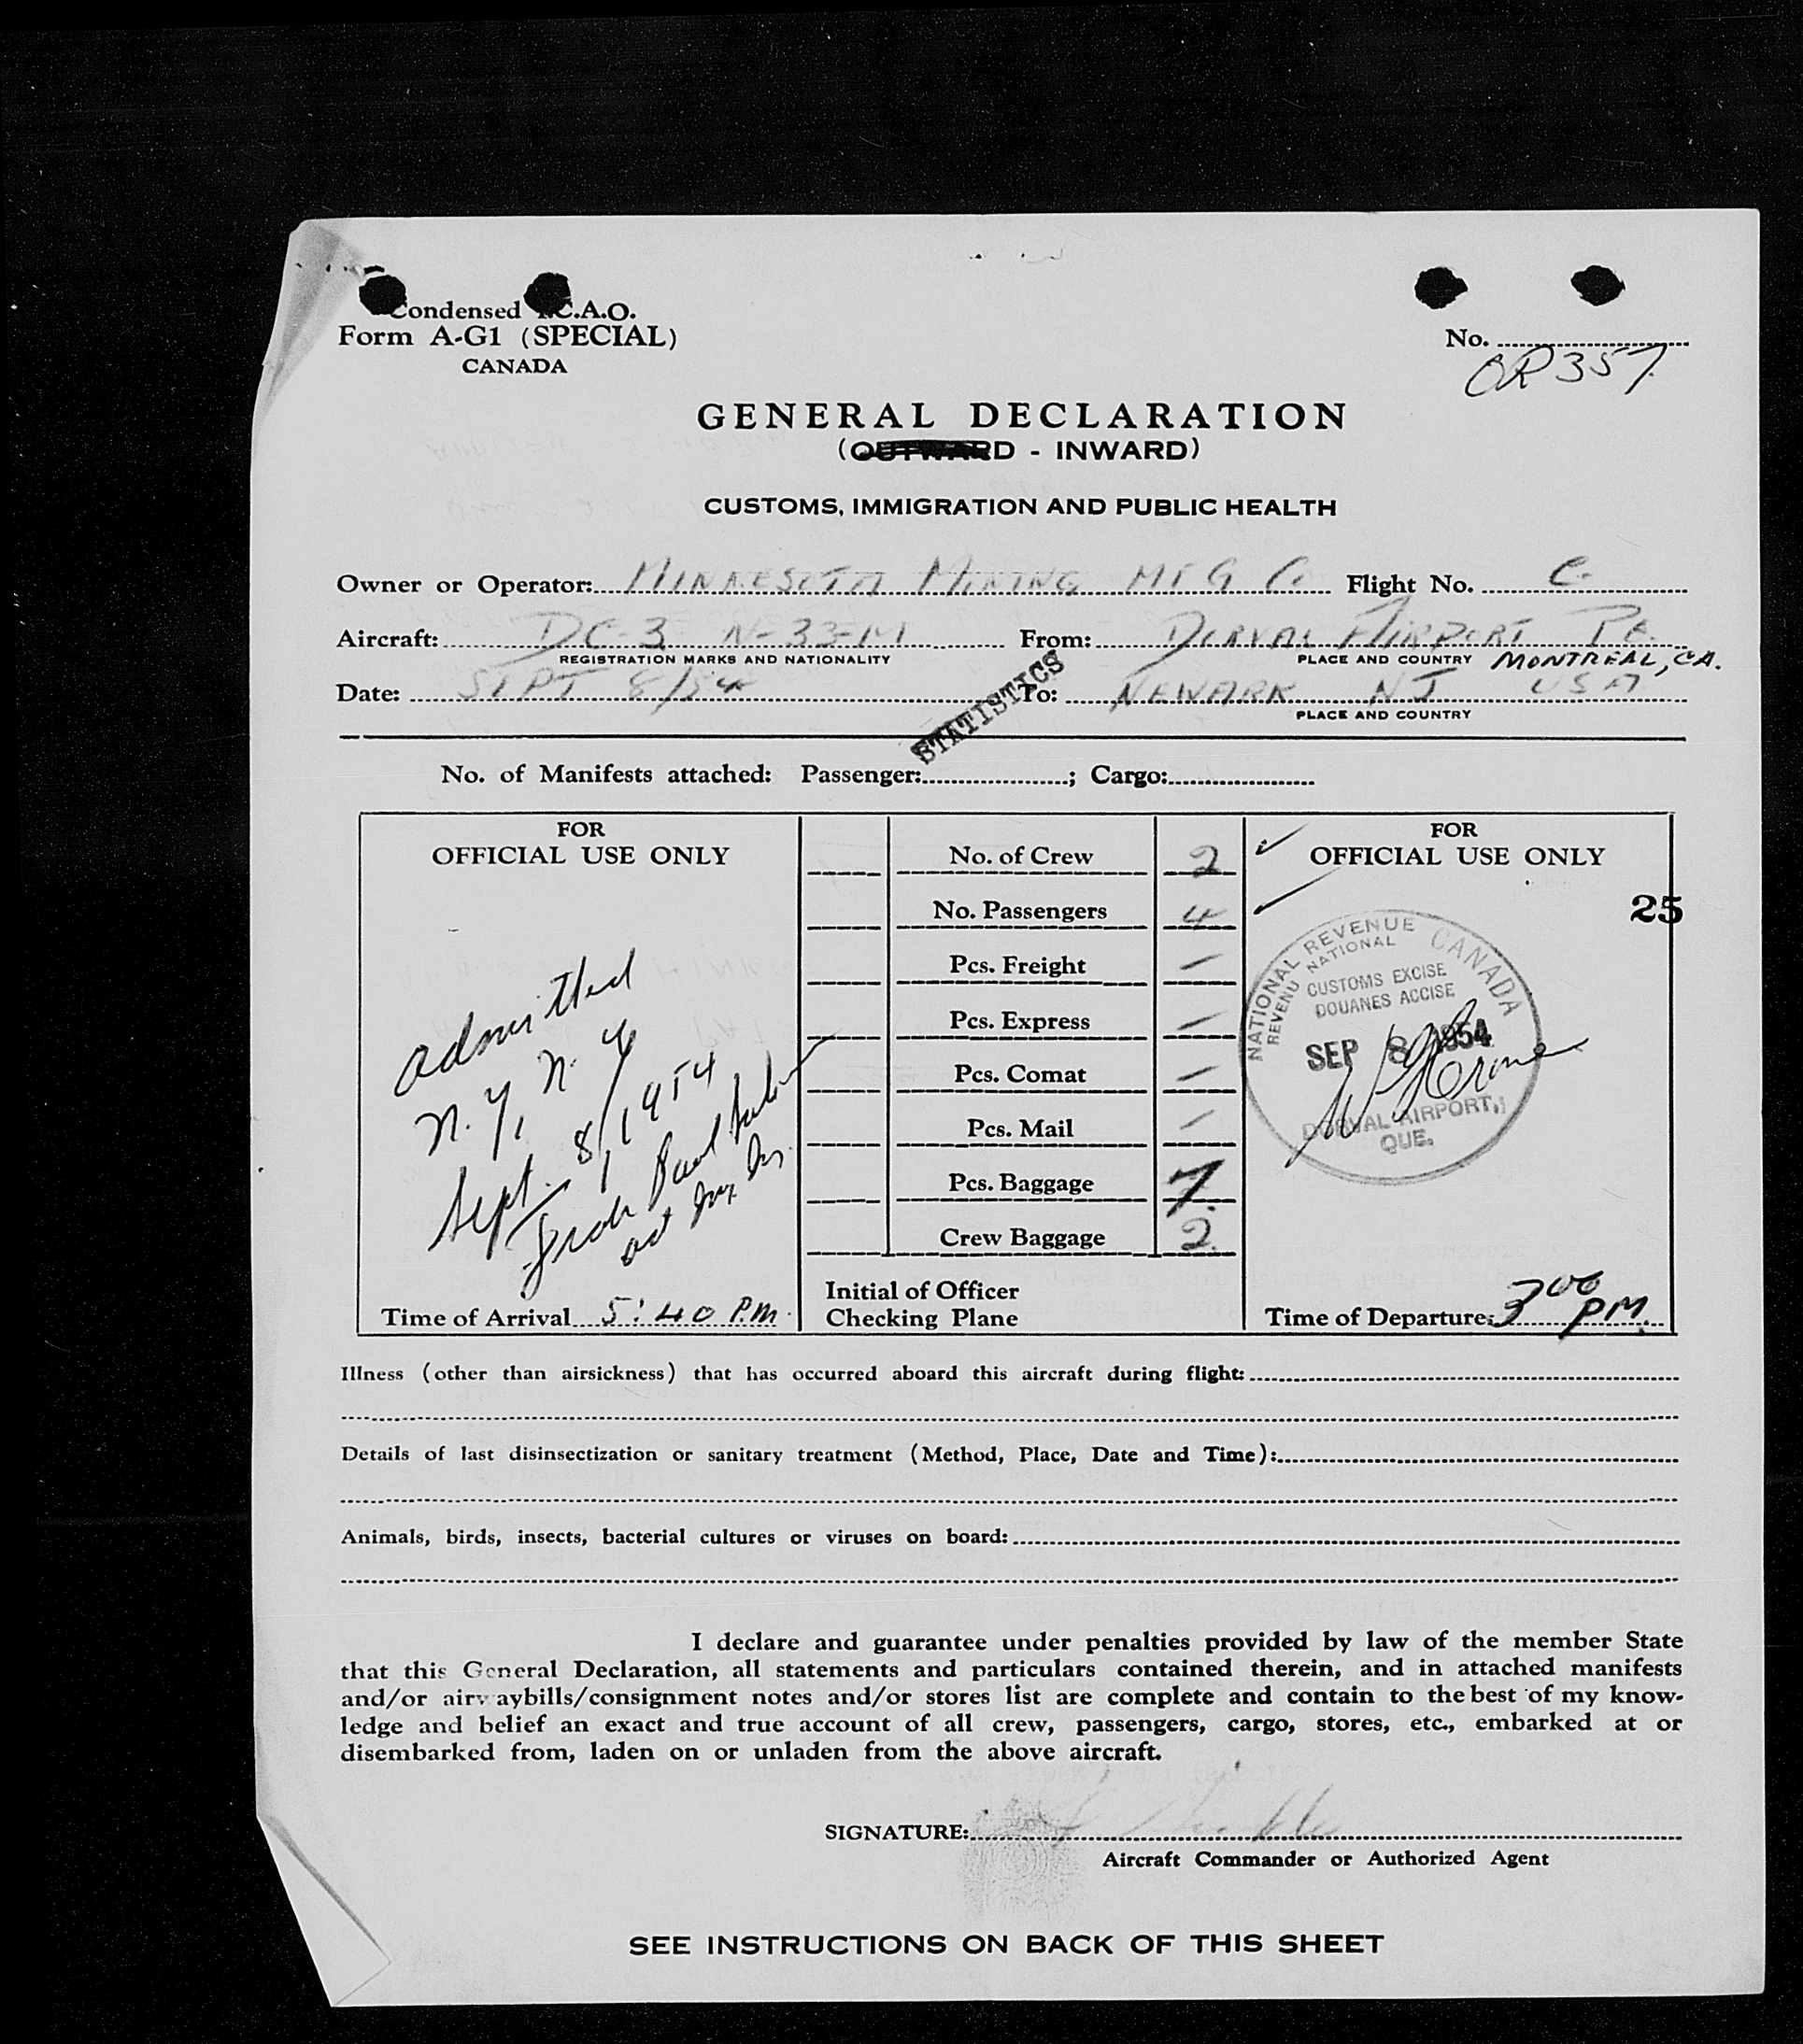 Condensed I.C.A.O.
Form A-G1 (SPECIAL)
CANADA
No.
OR357
GENERAL DECLARATION
(OUTWARD - INWARD)
CUSTOMS, IMMIGRATION AND PUBLIC HEALTH
Owner or Operator: MINNESOTA MINING MFG Co Flight No. C.
Aircraft: DC-3 N-33-M From: DORVAL AIRPORT
REGISTRATION MARKS AND NATIONALITY PLACE AND COUNTRY MONTREAL, CA.
Date: SEPT 8/54 To: NEWARK NJ USA
PLACE AND COUNTRY
STATISTICS
No. of Manifests attached: Passenger: ; Cargo:
FOR
OFFICIAL USE ONLY
admitted
N.Y, N.Y
Sept. 8/1954
Time of Arrival 5:40 P.M.
No. of Crew 2
No. Passengers 4
Pcs. Freight —
Pcs. Express —
Pcs. Comat —
Pcs. Mail —
Pcs. Baggage 7.
Crew Baggage 2.
Initial of Officer
Checking Plane
FOR
OFFICIAL USE ONLY
25
NATIONAL REVENUE CANADA
REVENU NATIONAL
CUSTOMS EXCISE
DOUANES ACCISE
SEP 8 1954
DORVAL AIRPORT,
QUE.
Time of Departure: 3 00 PM.
Illness (other than airsickness) that has occurred aboard this aircraft during flight:
Details of last disinsectization or sanitary treatment (Method, Place, Date and Time):
Animals, birds, insects, bacterial cultures or viruses on board:
I declare and guarantee under penalties provided by law of the member State
that this General Declaration, all statements and particulars contained therein, and in attached manifests
and/or airwaybills/consignment notes and/or stores list are complete and contain to the best of my know-
ledge and belief an exact and true account of all crew, passengers, cargo, stores, etc., embarked at or
disembarked from, laden on or unladen from the above aircraft.
SIGNATURE:
Aircraft Commander or Authorized Agent
SEE INSTRUCTIONS ON BACK OF THIS SHEET